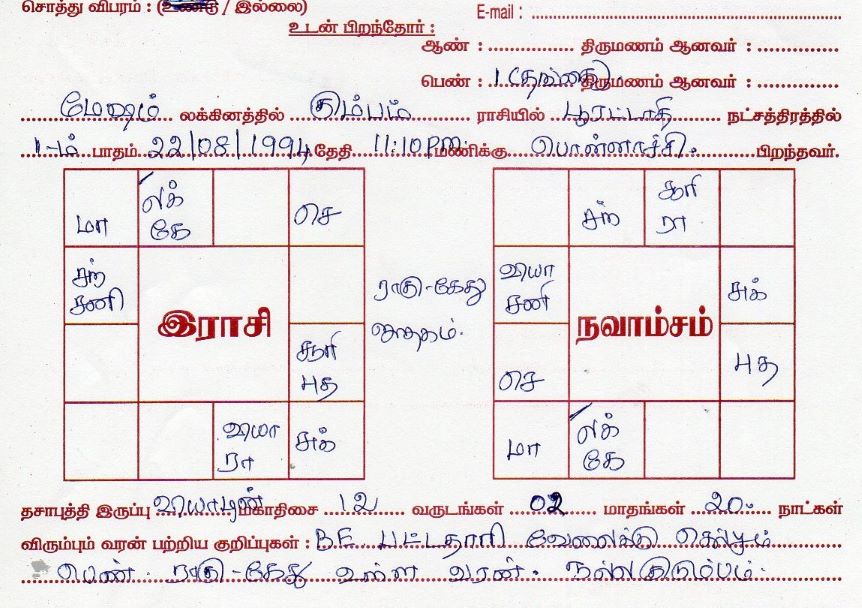 சொத்து விபரம் : (உண்டு / இல்லை)
E-mail :
உடன் பிறந்தோர் :
ஆண் : திருமணம் ஆனவர் :
பெண் : 1 (தங்கை) திருமணம் ஆனவர் :
மேஷம் லக்கினத்தில் கும்பம் ராசியில் பூரட்டாதி நட்சத்திரத்தில்
1-ம் பாதம் 22/08/1994 தேதி 11:10 PM மணிக்கு பொள்ளாச்சி. பிறந்தவர்.
மா லக் கே செ
சந் சனி
இராசி
சூரி புத
வியா ரா சுக்
ராகு-கேது
ஜாதகம்.
சந் சூரி ரா
வியா சனி சுக்
நவாம்சம்
செ புத
மா லக் கே
தசாபுத்தி இருப்பு வியாழன் மகாதிசை 12 வருடங்கள் 02 மாதங்கள் 20 நாட்கள்
விரும்பும் வரன் பற்றிய குறிப்புகள் : B.E பட்டதாரி வேலைக்கு செல்லும்
பெண் ராகு-கேது உள்ள வரன். நல்ல குடும்பம்.